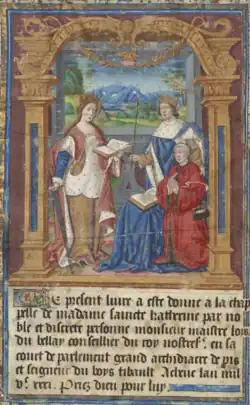 Ce present liure a este donne a la cha
pelle de madame saincte katherine par no
ble et discrete personne monsieur maistre loys
du bellay conseillier du roy nostre sr. en sa
court de parlement grand archidiacre de pis
et seigneur du boys thibault Acteur lan mil
vc. xxxi. Priez dieu pour luy.